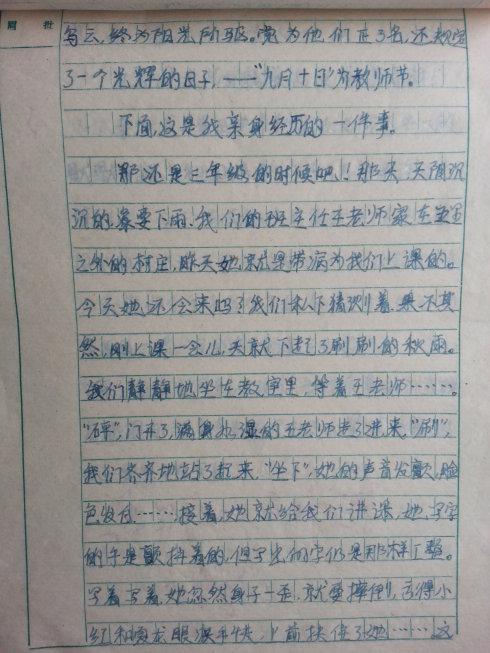 周 批
乌云,终为阳光所驱。党为他们正了名,还规定
了一个光辉的日子,——“九月十日”为教师节。
下面,这是我亲身经历的一件事。
那还是三年级的时候吧!那天,天阴沉
沉的,象要下雨,我们的班主任王老师家在
之外的村庄,昨天她就是带病为我们上课的。
今天她还会来吗?我们私下猜测着,果不其
然,刚上课一会儿,天就下起了刷刷的秋雨。
我们静静地坐在教室里,等着王老师……。
“砰”,门开了,满身水湿的王老师走了进来,“刷”,
我们齐齐地站了起来,“坐下”,她的声音发颤,脸
色发白……接着,她就给我们讲课,她写字
的手是颤抖着的,但写出的字仍是那样工整。
写着写着,她忽然身子一歪,就要摔倒,亏得小
红和爱龙眼漂手快,上前扶住了她……这